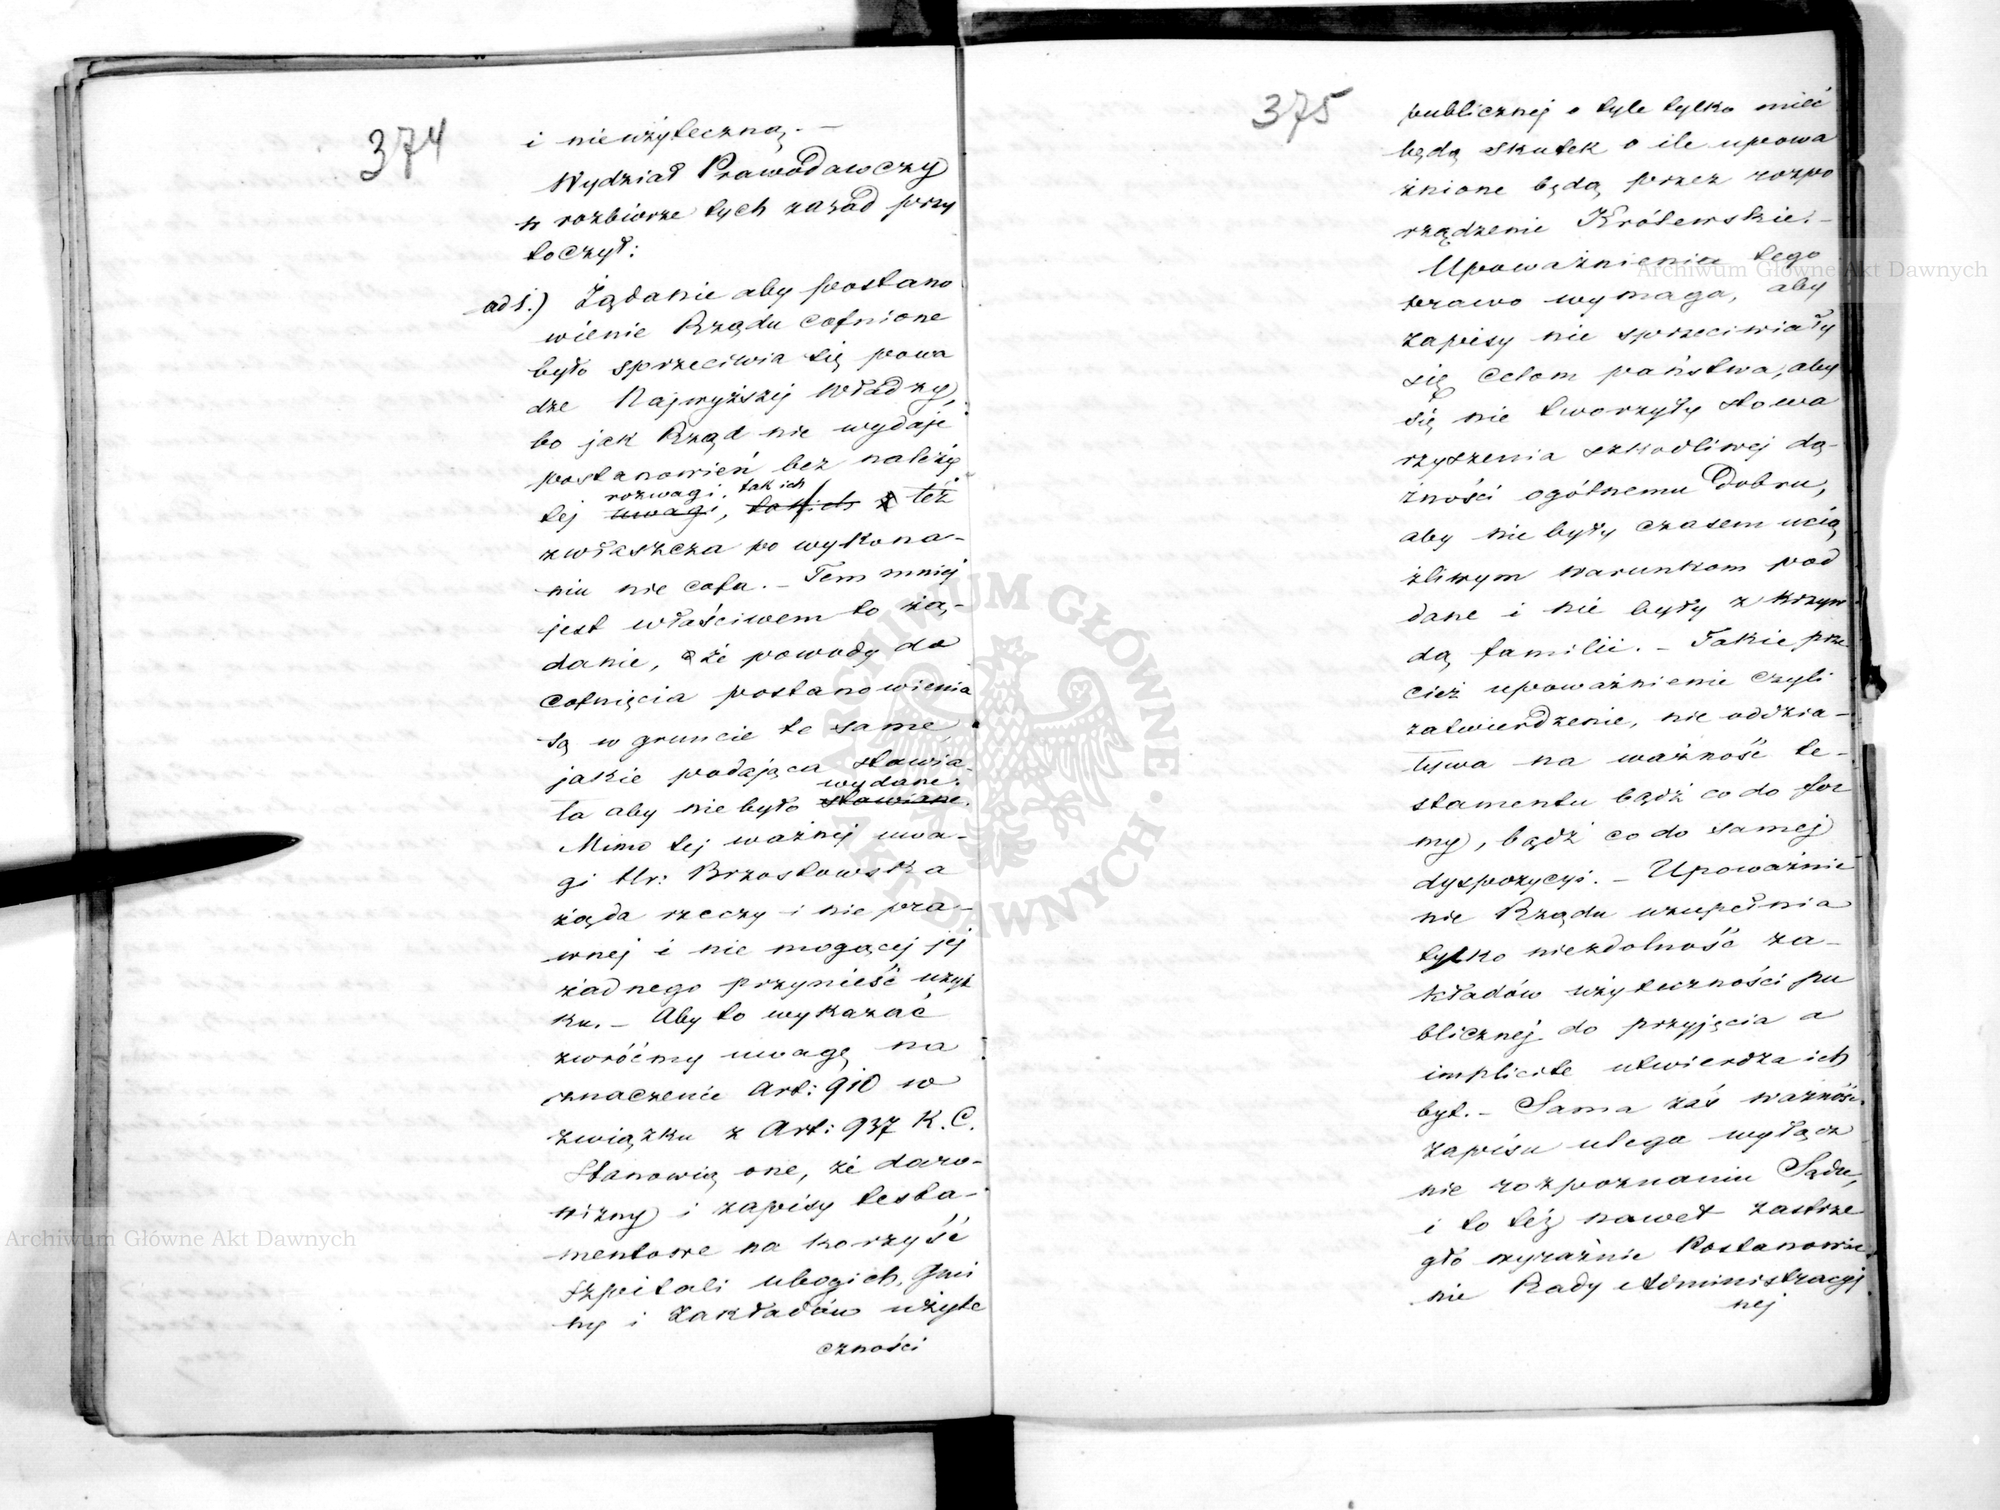 374
i nieużyteczną. —
Wydział Prawodawczy
w rozbiorze tych zasad przy
toczył:
ad 1.) Żądanie aby postano
wienie Rządu cofnione
było sprzeciwia się powa
dze Najwyższej Władzy,
bo jak Rząd nie wydaje
postanowień bez należy
rozwagi, takich
tej uwagi, takich też
zwłaszcza po wykona-
niu nie cofa. — Tem mniej
jest właściwem to żą-
danie, że powody do
cofnięcia postanowienia
są w gruncie te same
jakie podająca stawia-
wydane.
ła aby nie było stawiane.
Mimo tej ważnej uwa-
gi Hr: Brzostowska
żąda rzeczy i nie pra-
wnej i nie mogącej jej
żadnego przynieść użyt
ku. — Aby to wykazać
zwróćmy uwagę na
znaczenie Art: 910 w
związku z Art: 937 K. C.
Stanowią one, że daro-
wizny i zapisy testa-
mentowe na korzyść
Szpitali ubogich, Gmi
ny i Zakładów użyte
czności
375
publicznej o tyle tylko mieć
będą skutek o ile upowa
żnione będą przez rozpo
rządzenie Królewskie. —
Upoważnienia tego
prawo wymaga, aby
zapisy nie sprzeciwiały
się celom państwa, aby
się nie tworzyły stowa
rzyszenia szkodliwej dą-
żności ogólnemu Dobru,
aby nie były czasem ucią
żliwym warunkom pod
dane i nie były z krzyw-
dą familii. — Takie prze
cież upoważnienie czyli
zatwierdzenie, nie oddzia-
ływa na ważność te-
stamentu bądź co do for
my, bądź co do samej
dyspozycyi. — Upoważnie
nie Rządu uzupełnia
tylko niezdolność za-
kładów użyteczności pu
blicznej do przyjęcia a
implicite utwierdza ich
byt. — Sama zaś ważność
zapisu ulega wyłącz
nie rozpoznaniu Sądu,
i to też nawet zastrze
gło wyraźnie Postanowie
nie Rady Administracyj
nej
Archiwum Główne Akt Dawnych
Archiwum Główne Akt Dawnych
ARCHIWUM GŁÓWNE AKT DAWNYCH